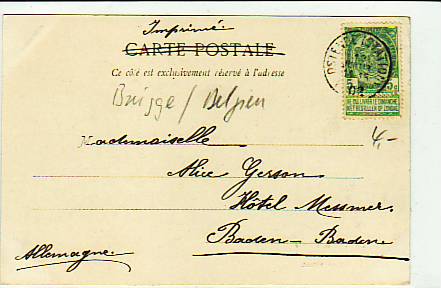 Imprimé
CARTE POSTALE
Ce côté est exclusivement réservé à l'adresse
Brügge / Belgien
4,-
Mademoiselle
Alice Gerson
Hôtel Messmer.
Baden-Baden
Allemagne.
NE PAS LIVRER LE DIMANCHE
NIET BESTELLEN OP ZONDAG